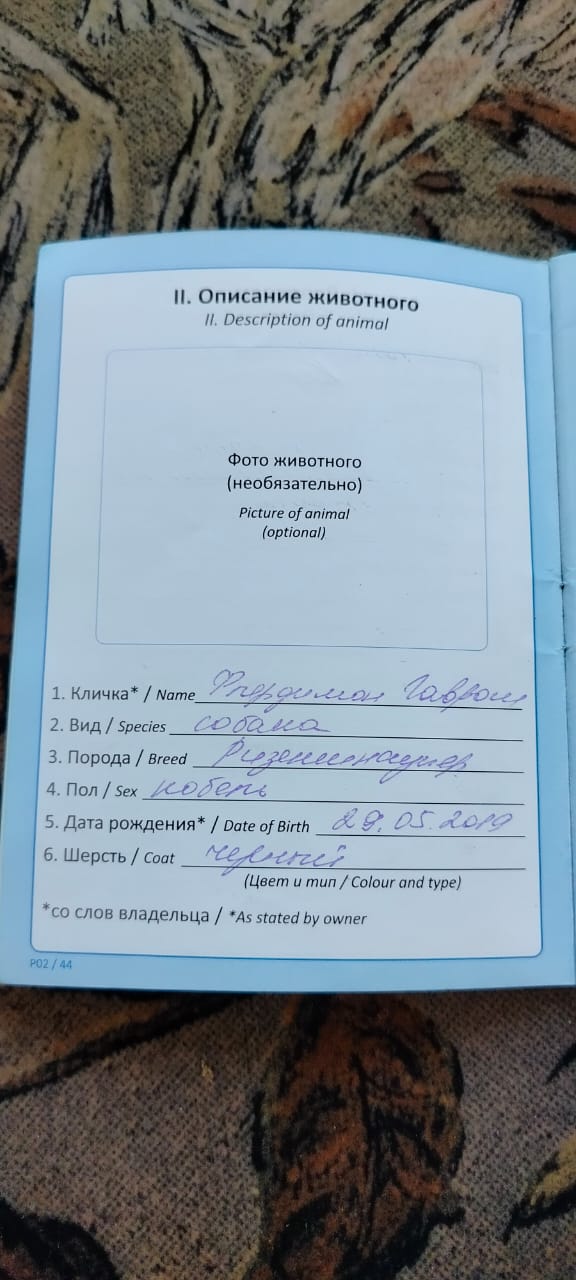 II. Описание животного
II. Description of animal
Фото животного
(необязательно)
Picture of animal
(optional)
1. Кличка* / Name Гаврош
2. Вид / Species собака
3. Порода / Breed Ризеншнауцер
4. Пол / Sex кобель
5. Дата рождения* / Date of Birth 29.05.2019
6. Шерсть / Coat черный
(Цвет и тип / Colour and type)
*со слов владельца / *As stated by owner
P02 / 44